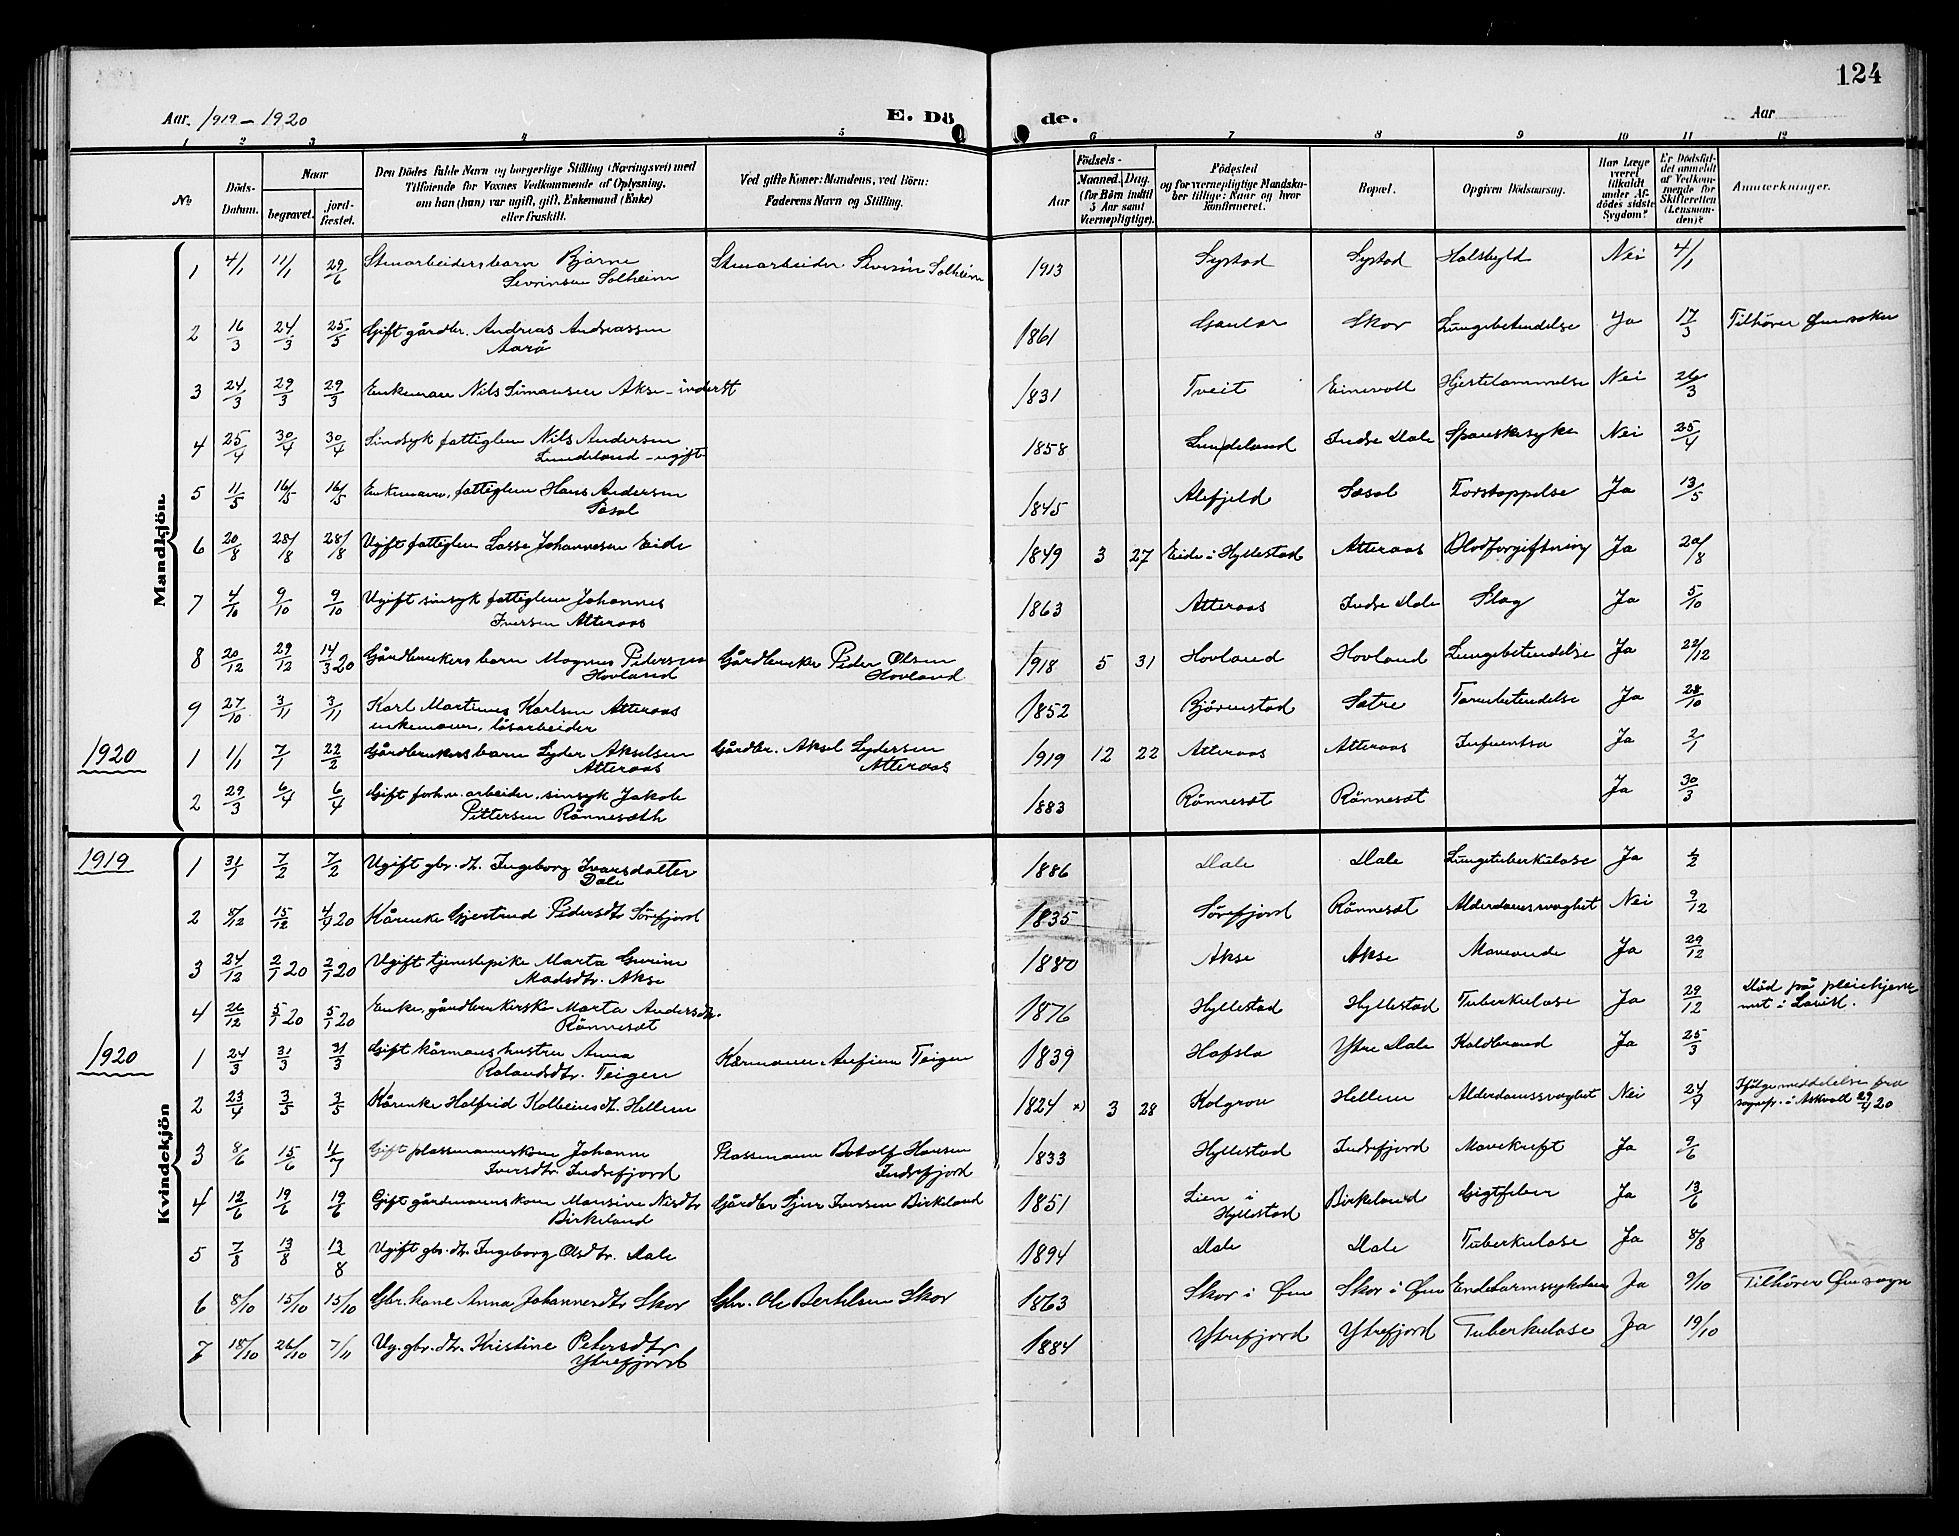 124
Aar. 1919 – 1920 E. Dö de. Aar
1 2 3 4 5 6 7 8 9 10 11 12
№ Döds-Datum. Naar begravet. jord-fæstet.
Den Dödes fulde Navn og borgerlige Stilling (Næringsvei) med
Tilföiende for Voxnes Vedkommende af Oplysning,
om han (hun) var ugift, gift, Enkemand (Enke)
eller fraskilt.
Ved gifte Koner: Mandens, ved Börn:
Faderens Navn og Stilling.
Födsels-
Aar Maaned. Dag.
(for Börn indtil
5 Aar samt
Værnepligtige).
Födested
og for værnepligtige Mandska-
ber tillige: Naar og hvor
konfirmeret.
Bopæl.
Opgiven Dödsaarsag.
Har Læge
været
tilkaldt
under Af-
dödes sidste
Sygdom?
Er Dödsfal-
det anmeldt
af Vedkom-
mende for
Skifteretten
(Lensman-
den)?
Anmærkninger.
Mandkjön
1 4/1 11/1 29/6 Stenarbeidersbarn Bjarne Stenarbeider Severin Solheim 1913 Systad Systad Halsbyld Nei 4/1
Sevrinsen Solheim
2 16/3 24/3 25/5 Gift gårdbr. Andreas Andreassen 1861 Gaular Skor Lungebetendelse Ja 17/3 Tilhører Øen sokn
Aarø
3 24/3 29/3 29/3 Enkeman Nils Simonsen Akse – inderst 1831 Tveit Einevoll Hjertelammelse Nei 26/3
4 25/4 30/4 30/4 Sindsyk fattiglem Nils Andersen 1858 Lundeland Indre Dale Spanskesyke Nei 25/4
Lundeland – ugift
5 11/5 16/5 16/5 Enkemann, fattiglem Hans Andersen 1845 Alefjeld Sæsol Forstoppelse Ja 13/5
Sæsol
6 20/8 28/8 28/8 Ugift fattiglem Lasse Johannesen Eide 1849 3 27 Eide i Hyllestad Atteraas Blodforgiftning Ja 20/8
7 4/10 9/10 9/10 Ugift sinsyk fattiglem Johannes 1863 Atteraas Indre Dale Slag Ja 5/10
Iversen Atteraas
8 20/12 29/12 14/3 20 Gårdbrukersbarn Magnus Pedersen Gårdbruker Peder Olsen 1918 5 31 Hovland Hovland Lungebetendelse Ja 22/12
Hovland Hovland
9 27/10 3/11 3/11 Karl Martinus Karlsen Atteraas 1852 Bjørnstad Sætre Tarmbetendelse Ja 28/10
enkemann, løsarbeider
1920 1 1/1 7/1 22/2 Gårdbrukersbarn Lyder Akselsen Gårdbr. Aksel Lydersen 1919 12 22 Atteraas Atteraas Infuentsa Ja 2/1
Atteraas Atteraas
2 29/3 6/4 6/4 Gift forhv. arbeider, sinsyk Jakob 1883 Rønneset Rønneset Ja 30/3
Pettersen Rønneseth
Kvindekjön
1919 1 31/1 7/2 7/2 Ugift gbr. dt. Ingeborg Ivarsdatter 1886 Dale Dale Lungetuberkulose Ja 1/2
Dale
2 8/12 15/12 4/1 20 Kårenke Gjertrud Pedersdt Sørefjord 1835 Sørefjord Rønneset Alderdomssvaghet Nei 9/12
3 24/12 2/1 20 2/1 20 Ugift tjenestepike Marta Gurine 1880 Akse Akse Maveonde Ja 29/12
Madsdt. Akse
4 26/12 5/1 20 5/1 20 Enke, gårdbrukerske Marta Andersdtr. 1876 Hyllestad Hyllestad Tuberkulose Ja 29/12 Død på pleiehjem-
Rønneset met i Lavik.
1920 1 24/3 31/3 31/3 Gift kårmanshustru Anna Kårmann Anfinn Teigen 1839 Hafsla Ytre Dale Koldbrand Ja 25/3
Rolandsdtr. Teigen
2 23/4 3/5 3/5 Kårenke Halfrid Kolbeinsdt. Hellem 1824 x) 3 28 Kolgrov Hellem Alderdomssvaghet Nei 24/4 Ifølge meddelelse fra
sognepr. i Askvoll 29/4 20
3 8/6 15/6 11/7 Gift plassmannskone Johanne Plassmann Botolf Hansen 1833 Hyllestad Indrefjord Mavekreft Ja 9/6
Iversdtr. Indrefjord Indrefjord
4 12/6 19/6 19/6 Gift gårdmannskone Mansine Nisdtr Gårdbr Iversen Birkeland 1851 Lien i Birkeland Gigtfeber Ja 13/6
Birkeland Hyllestad
5 7/8 13/8 13/8 Ugift gbr. dtr. Ingeborg Olsdtr. Dale 1894 Dale Dale Tuberkulose Ja 8/8
6 8/10 15/10 15/10 Gbr. kone Anna Johannesdtr Skor Gbr. Ole Bertelsen Skor 1863 Skor i Øen Skor i Øen Endetarmssykdom Ja 9/10 Tilhører Øen sogn
7 18/10 26/10 7/11 Ug. gbr. dtr. Kristine Petersdtr 1884 Ytrefjord Ytrefjord Tuberkulose Ja 19/10
Ytrefjord